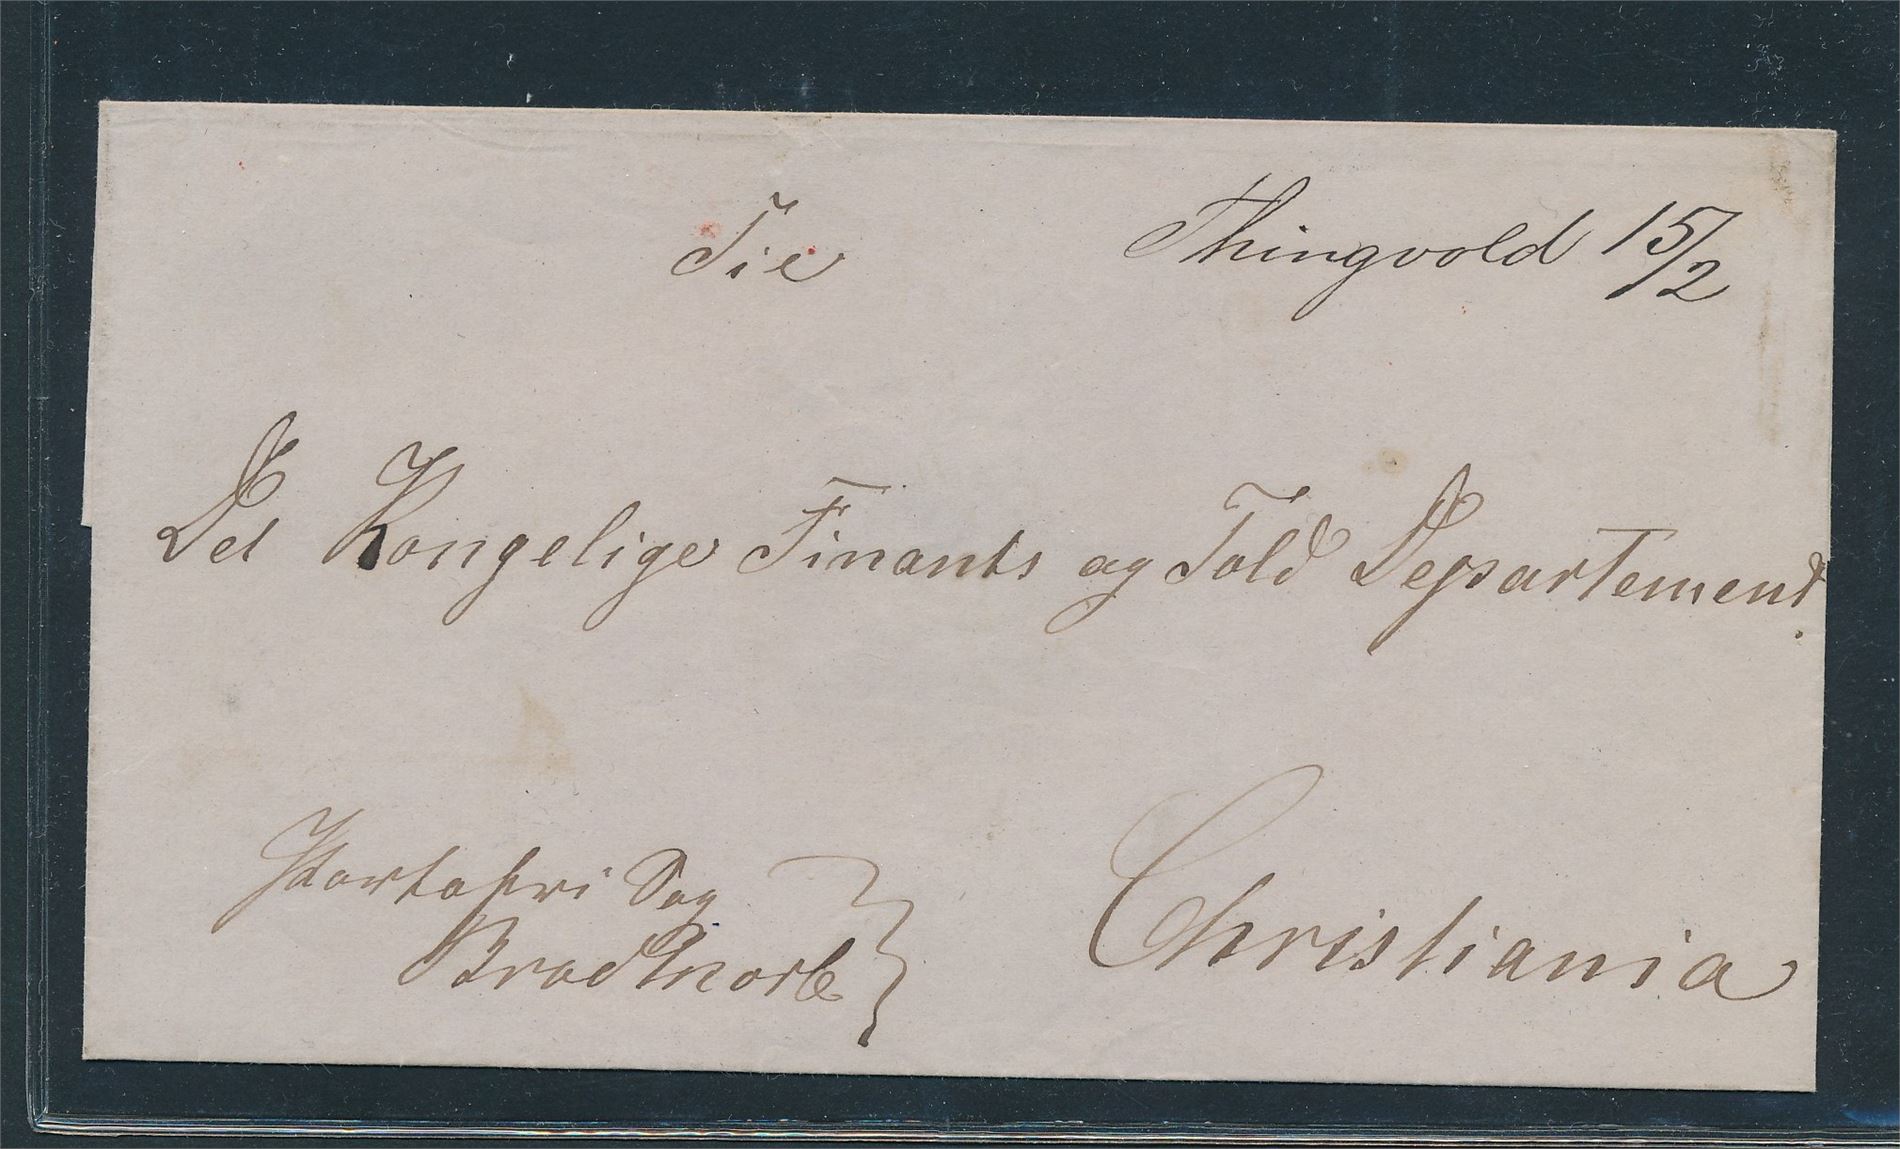 Til
Thingvold 15/2
Det Kongelige Finants og Told Departement.
Portofri Sag
Christiania